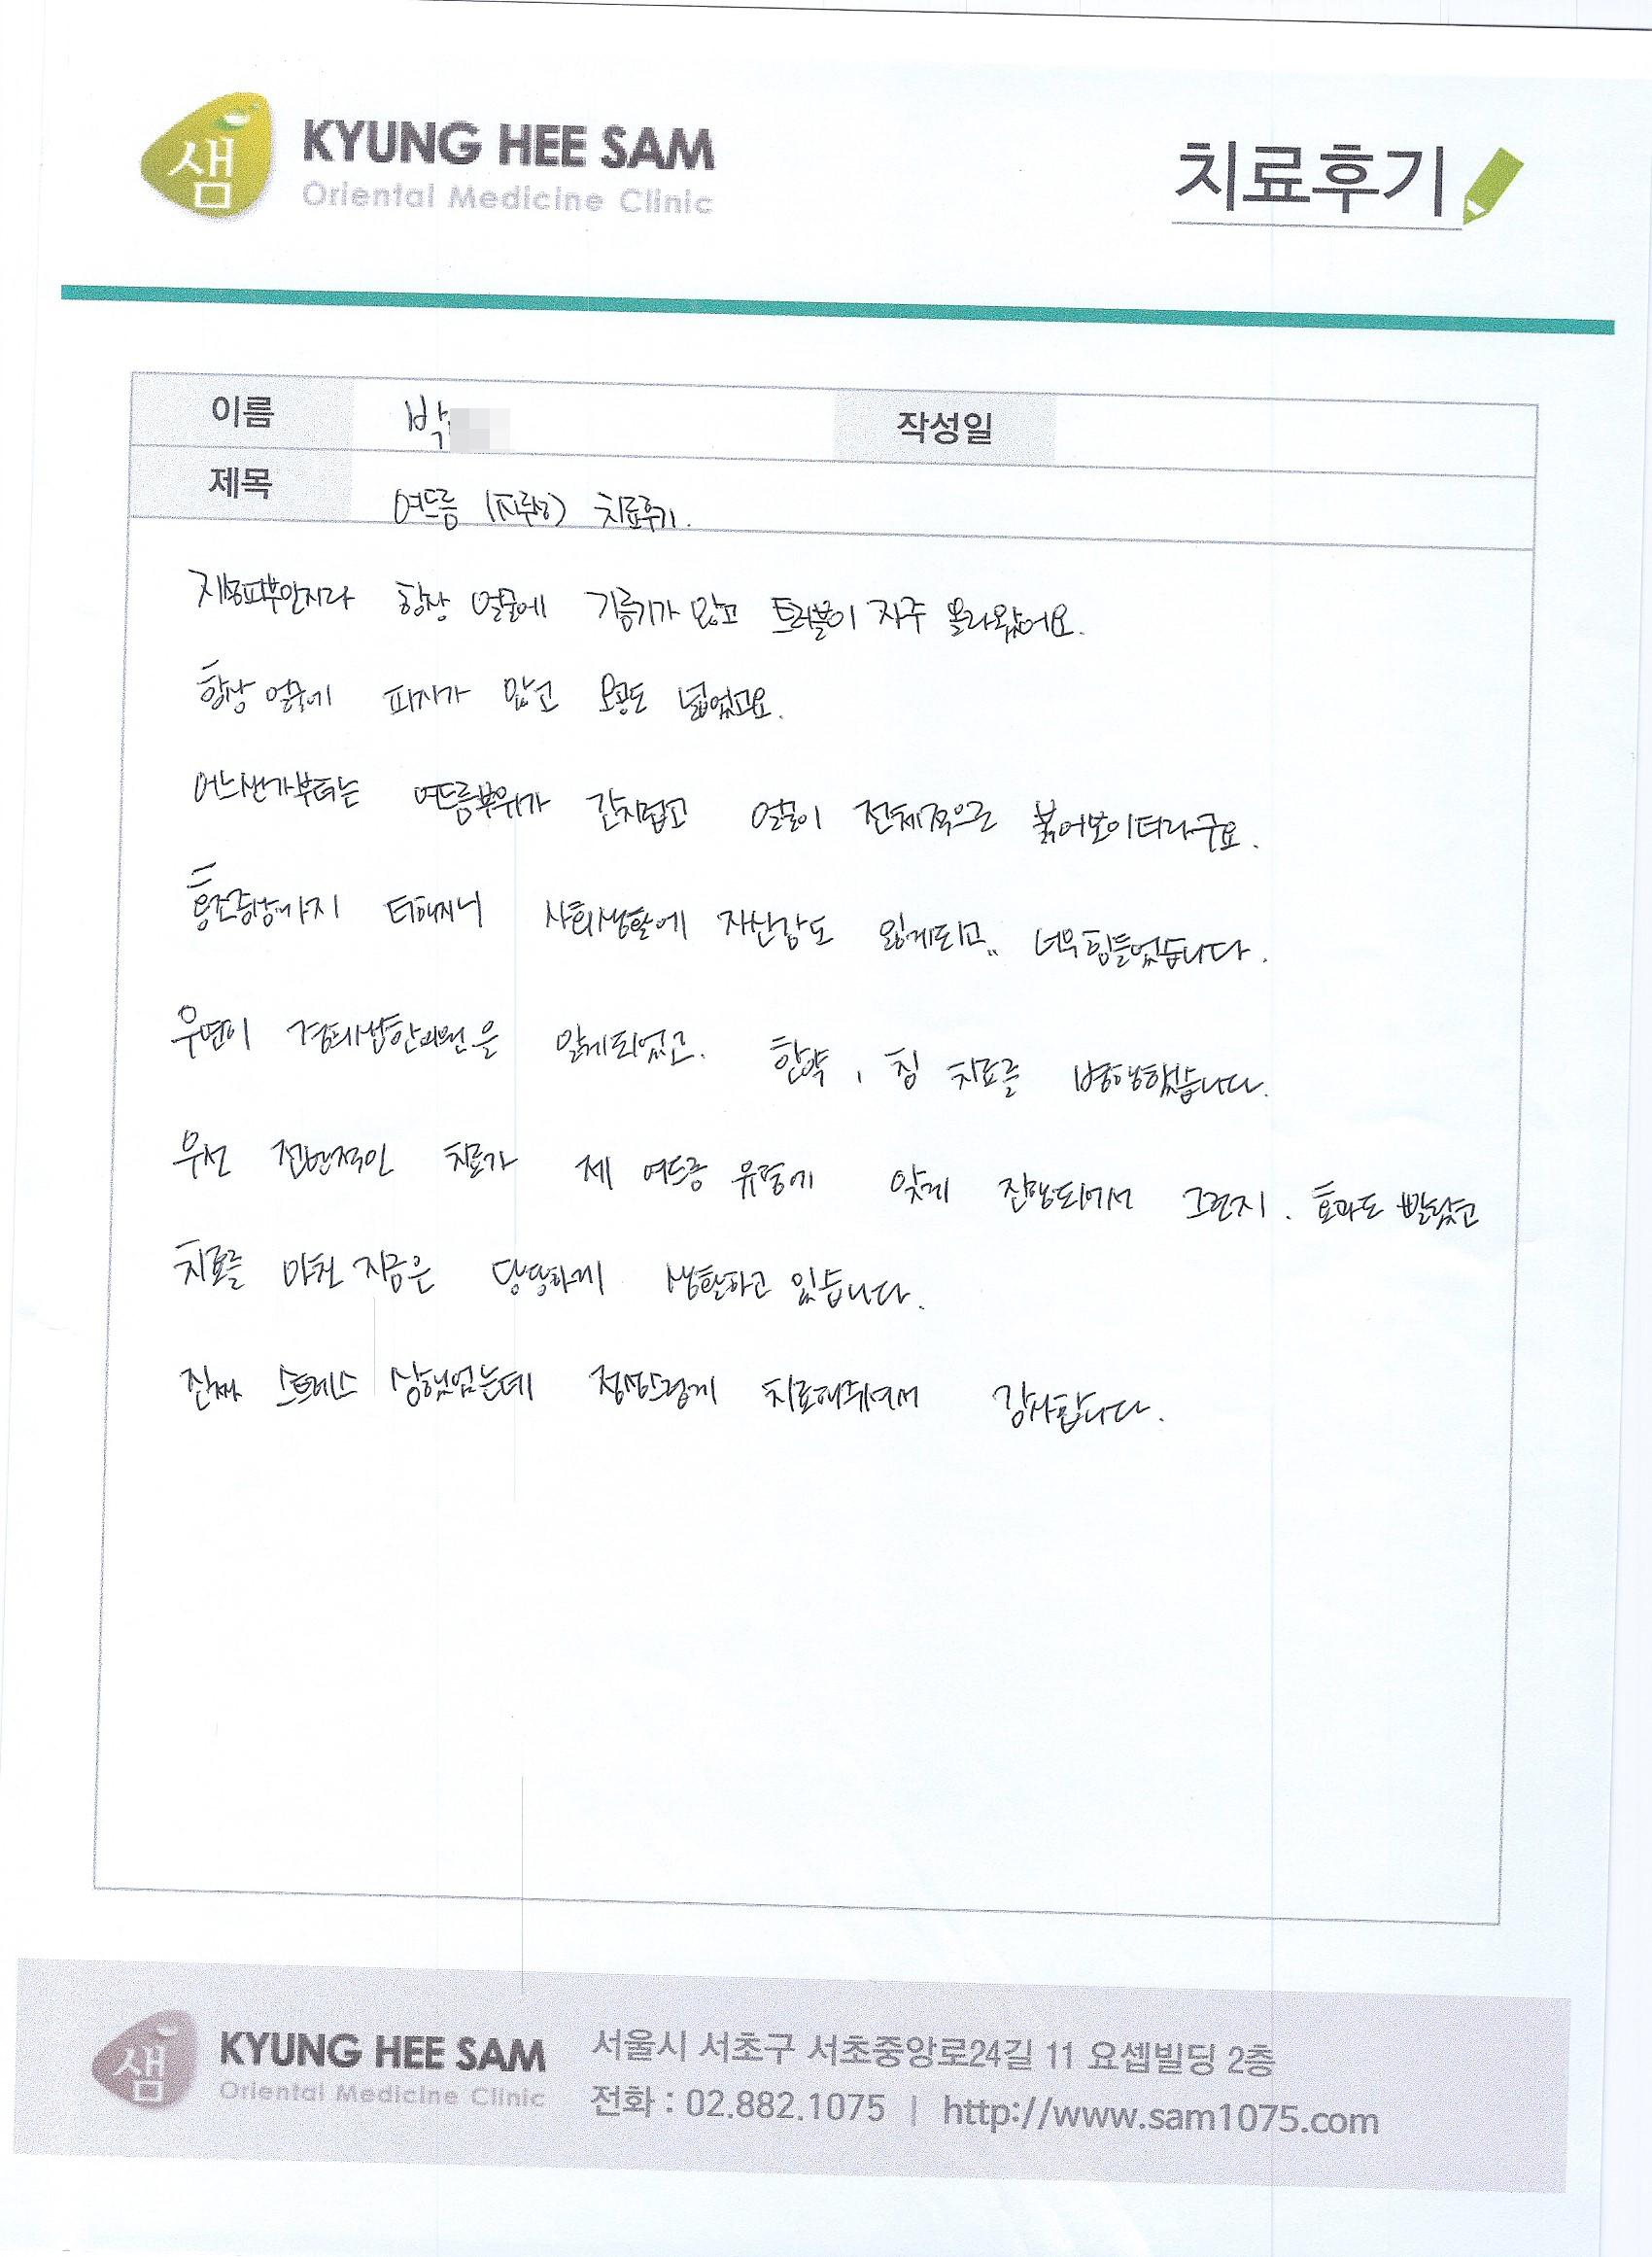 샘 KYUNG HEE SAM
Oriental Medicine Clinic
치료후기
이름 박 작성일
제목 여드름 (지루성) 치료후기.
지성피부인지라 항상 얼굴에 기름기가 많고 트러블이 자주 올라왔어요.
항상 얼굴에 피지가 많고 모공도 넓었고요.
어느샌가부터는 여드름부위가 간지럽고 얼굴이 전체적으로 붉어보이더라구요.
홍조증상까지 더해지니 사회생활에 자신감도 잃게되고.. 너무 힘들었습니다.
우연히 경희샘한의원을 알게되었고. 한약, 침 치료를 병행했습니다.
우선 전반적인 치료가 제 여드름 유형에 맞게 진행되어서 그런지. 효과도 빨랐고
치료를 마친 지금은 당당하게 생활하고 있습니다.
진짜 스트레스 상했었는데 정성스럽게 치료해주셔서 감사합니다.
샘 KYUNG HEE SAM
Oriental Medicine Clinic
서울시 서초구 서초중앙로24길 11 요셉빌딩 2층
전화 : 02.882.1075 | http://www.sam1075.com